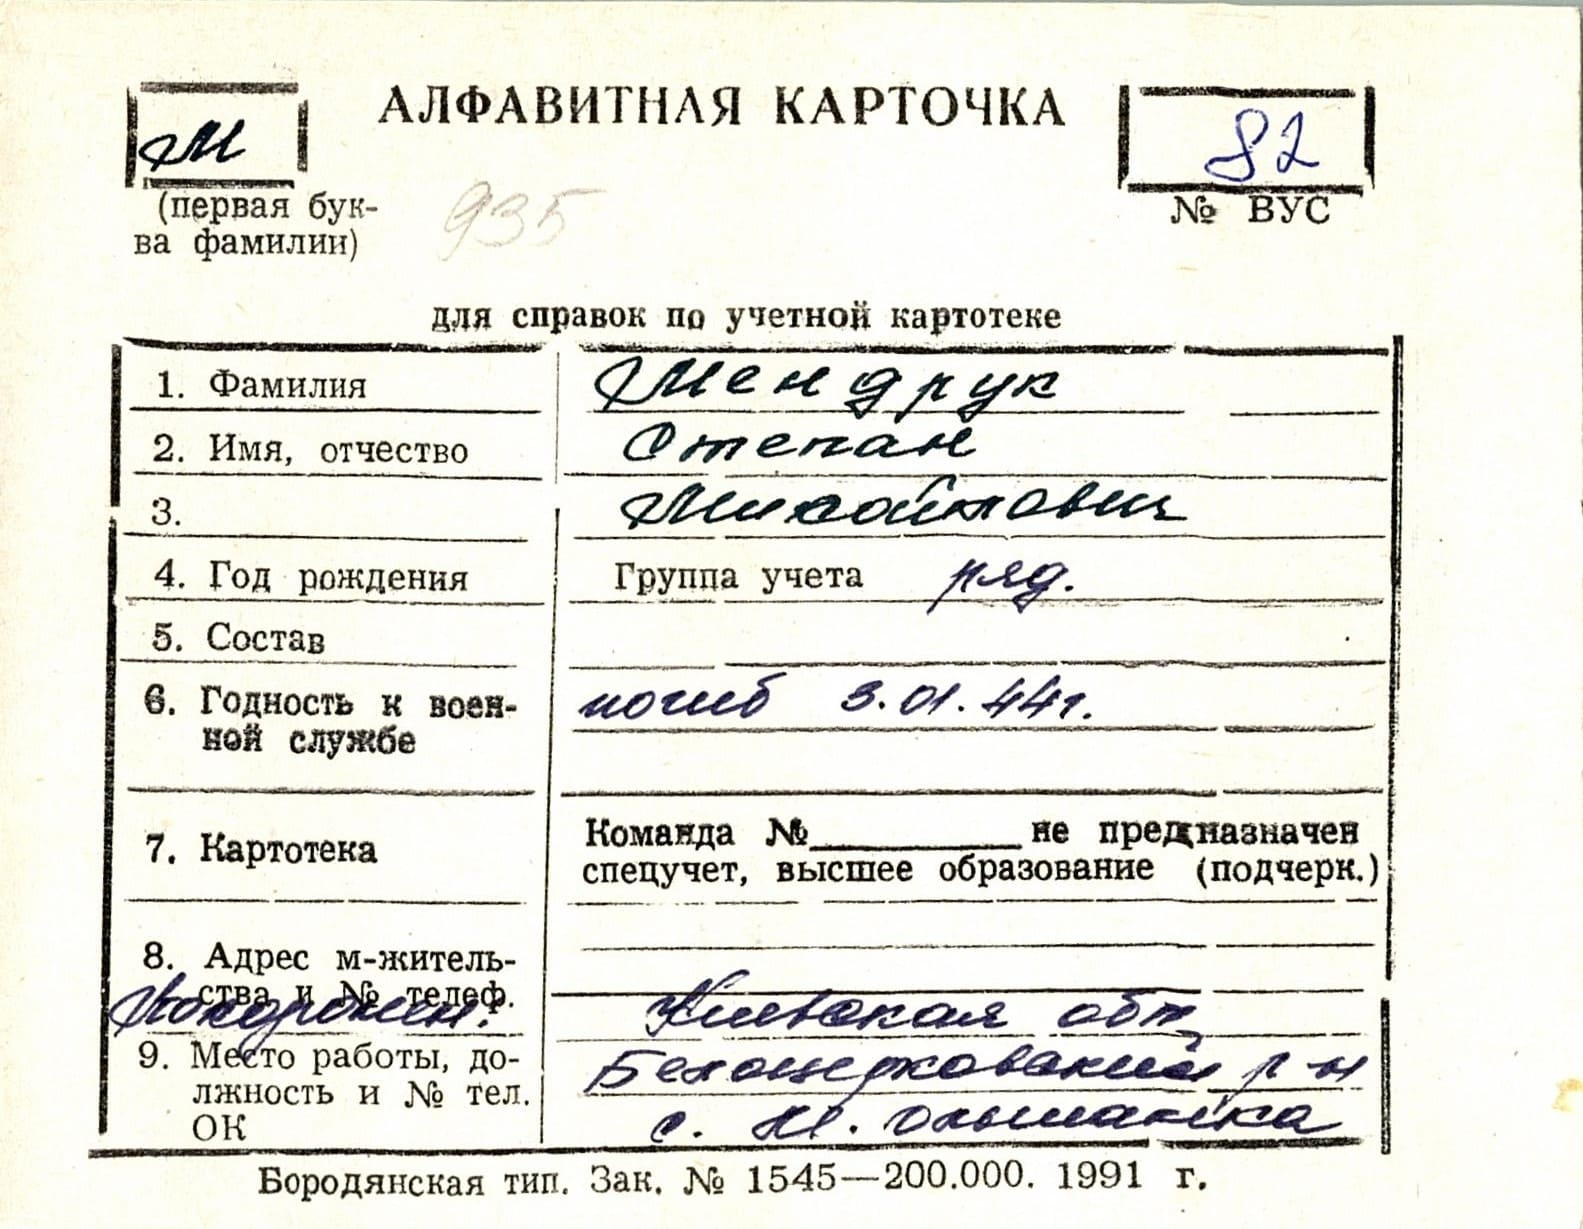 АЛФАВИТНАЯ КАРТОЧКА
М
82
(первая бук-
ва фамилии)
935
№ ВУС
для справок по учетной картотеке
1. Фамилия Мендрук
2. Имя, отчество Степан
3. Михайлович
4. Год рождения Группа учета ряд.
5. Состав
6. Годность к воен- погиб 3.01.44г.
ной службе
7. Картотека Команда №__________не предназначен
спецучет, высшее образование (подчерк.)
8. Адрес м-житель-
ства и № телеф.
Похоронен: Киевская обл,
9. Место работы, до- Белоцерковский р-н
лжность и № тел. с. М. Ольшанка
ОК
Бородянская тип. Зак. № 1545—200.000. 1991 г.